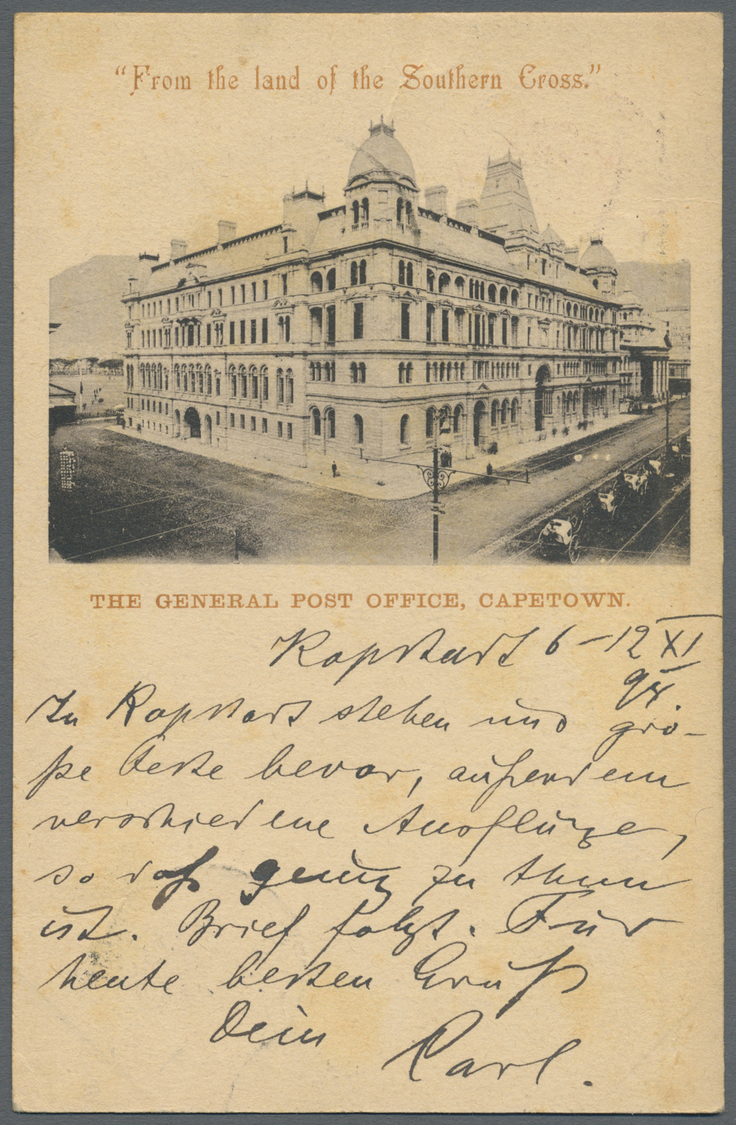 "From the land of the Southern Cross."
THE GENERAL POST OFFICE, CAPETOWN.
Kapstadt 6-12 XI
In Kapstadt stehen uns grö-
ße Feste bevor, außerdem
verschiedene Ausflüge,
so daß genug zu thun
ist. Brief folgt. Für
heute besten Gruß
Dein
Carl.